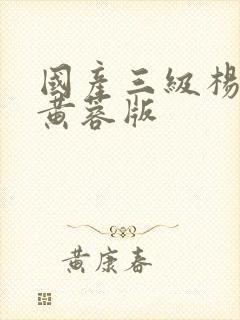 國產三級楊
黃蓉版
黃康春